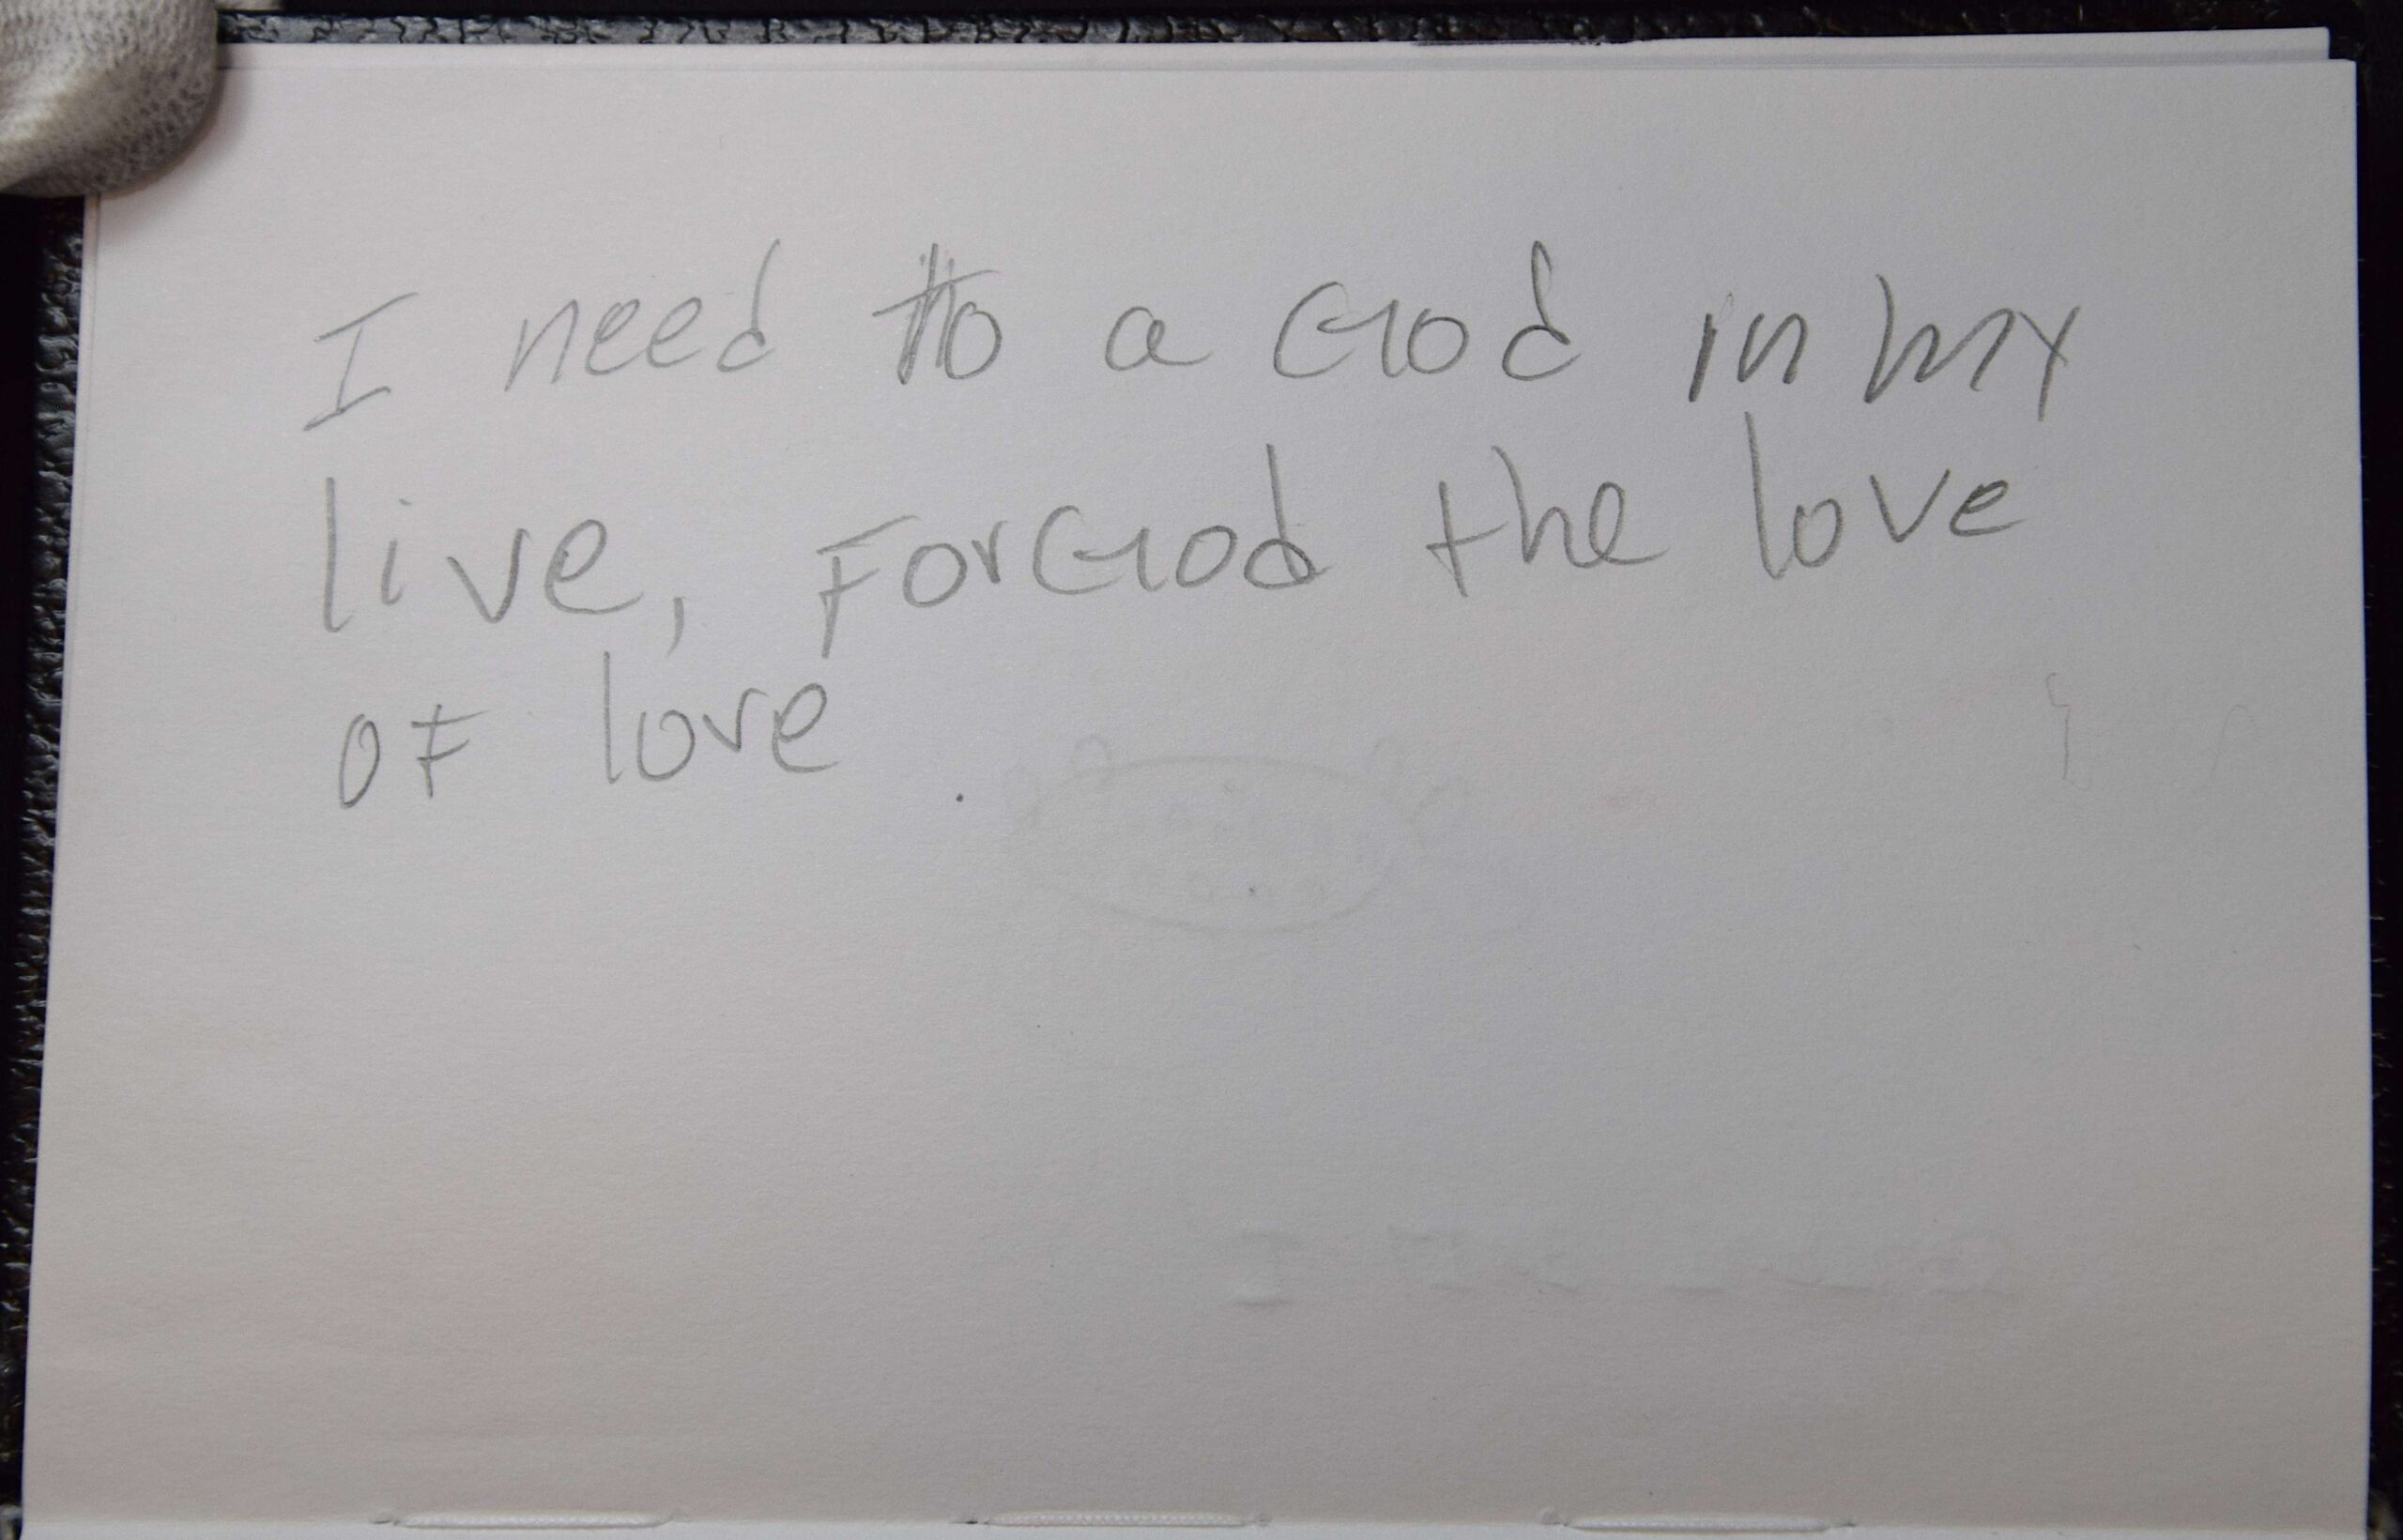 I need to a God in my
live, For God the love
of love.